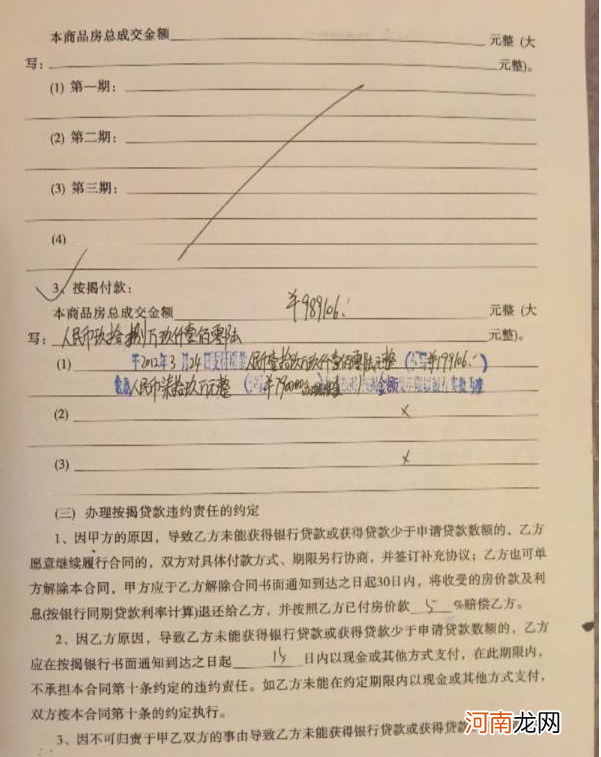 本商品房总成交金额 元整 (大
写: 元整)。
(1) 第一期:
(2) 第二期:
(3) 第三期:
(4)
3、按揭付款:
本商品房总成交金额 ¥989106. 元整 (大
写: 人民币玖拾捌万玖仟壹佰零陆 元整)。
(1) 于2012年3月24日支付 人民币壹拾玖万玖仟壹佰零陆元整 (小写¥199106.)
人民币柒拾玖万元整 ¥790000 金额
(2) ×
(3) ×
(三) 办理按揭贷款违约责任的约定
1、因甲方的原因，导致乙方未能获得银行贷款或获得贷款少于申请贷款数额的，乙方
愿意继续履行合同的，双方对具体付款方式、期限另行协商，并签订补充协议；乙方也可单
方解除本合同，甲方应于乙方解除合同书面通知到达之日起30日内，将收受的房价款及利
息(按银行同期贷款利率计算)退还给乙方，并按照乙方已付房价款 5 %赔偿乙方。
2、因乙方原因，导致乙方未能获得银行贷款或获得贷款少于申请贷款数额的，乙方
应在按揭银行书面通知到达之日起 15 日内以现金或其他方式支付，在此期限内，
不承担本合同第十条约定的违约责任。如乙方未能在约定期限内以现金或其他方式支付，
双方按本合同第十条的约定执行。
3、因不可归责于甲乙双方的事由导致乙方未能获得银行贷款或获得贷款
河南龙网